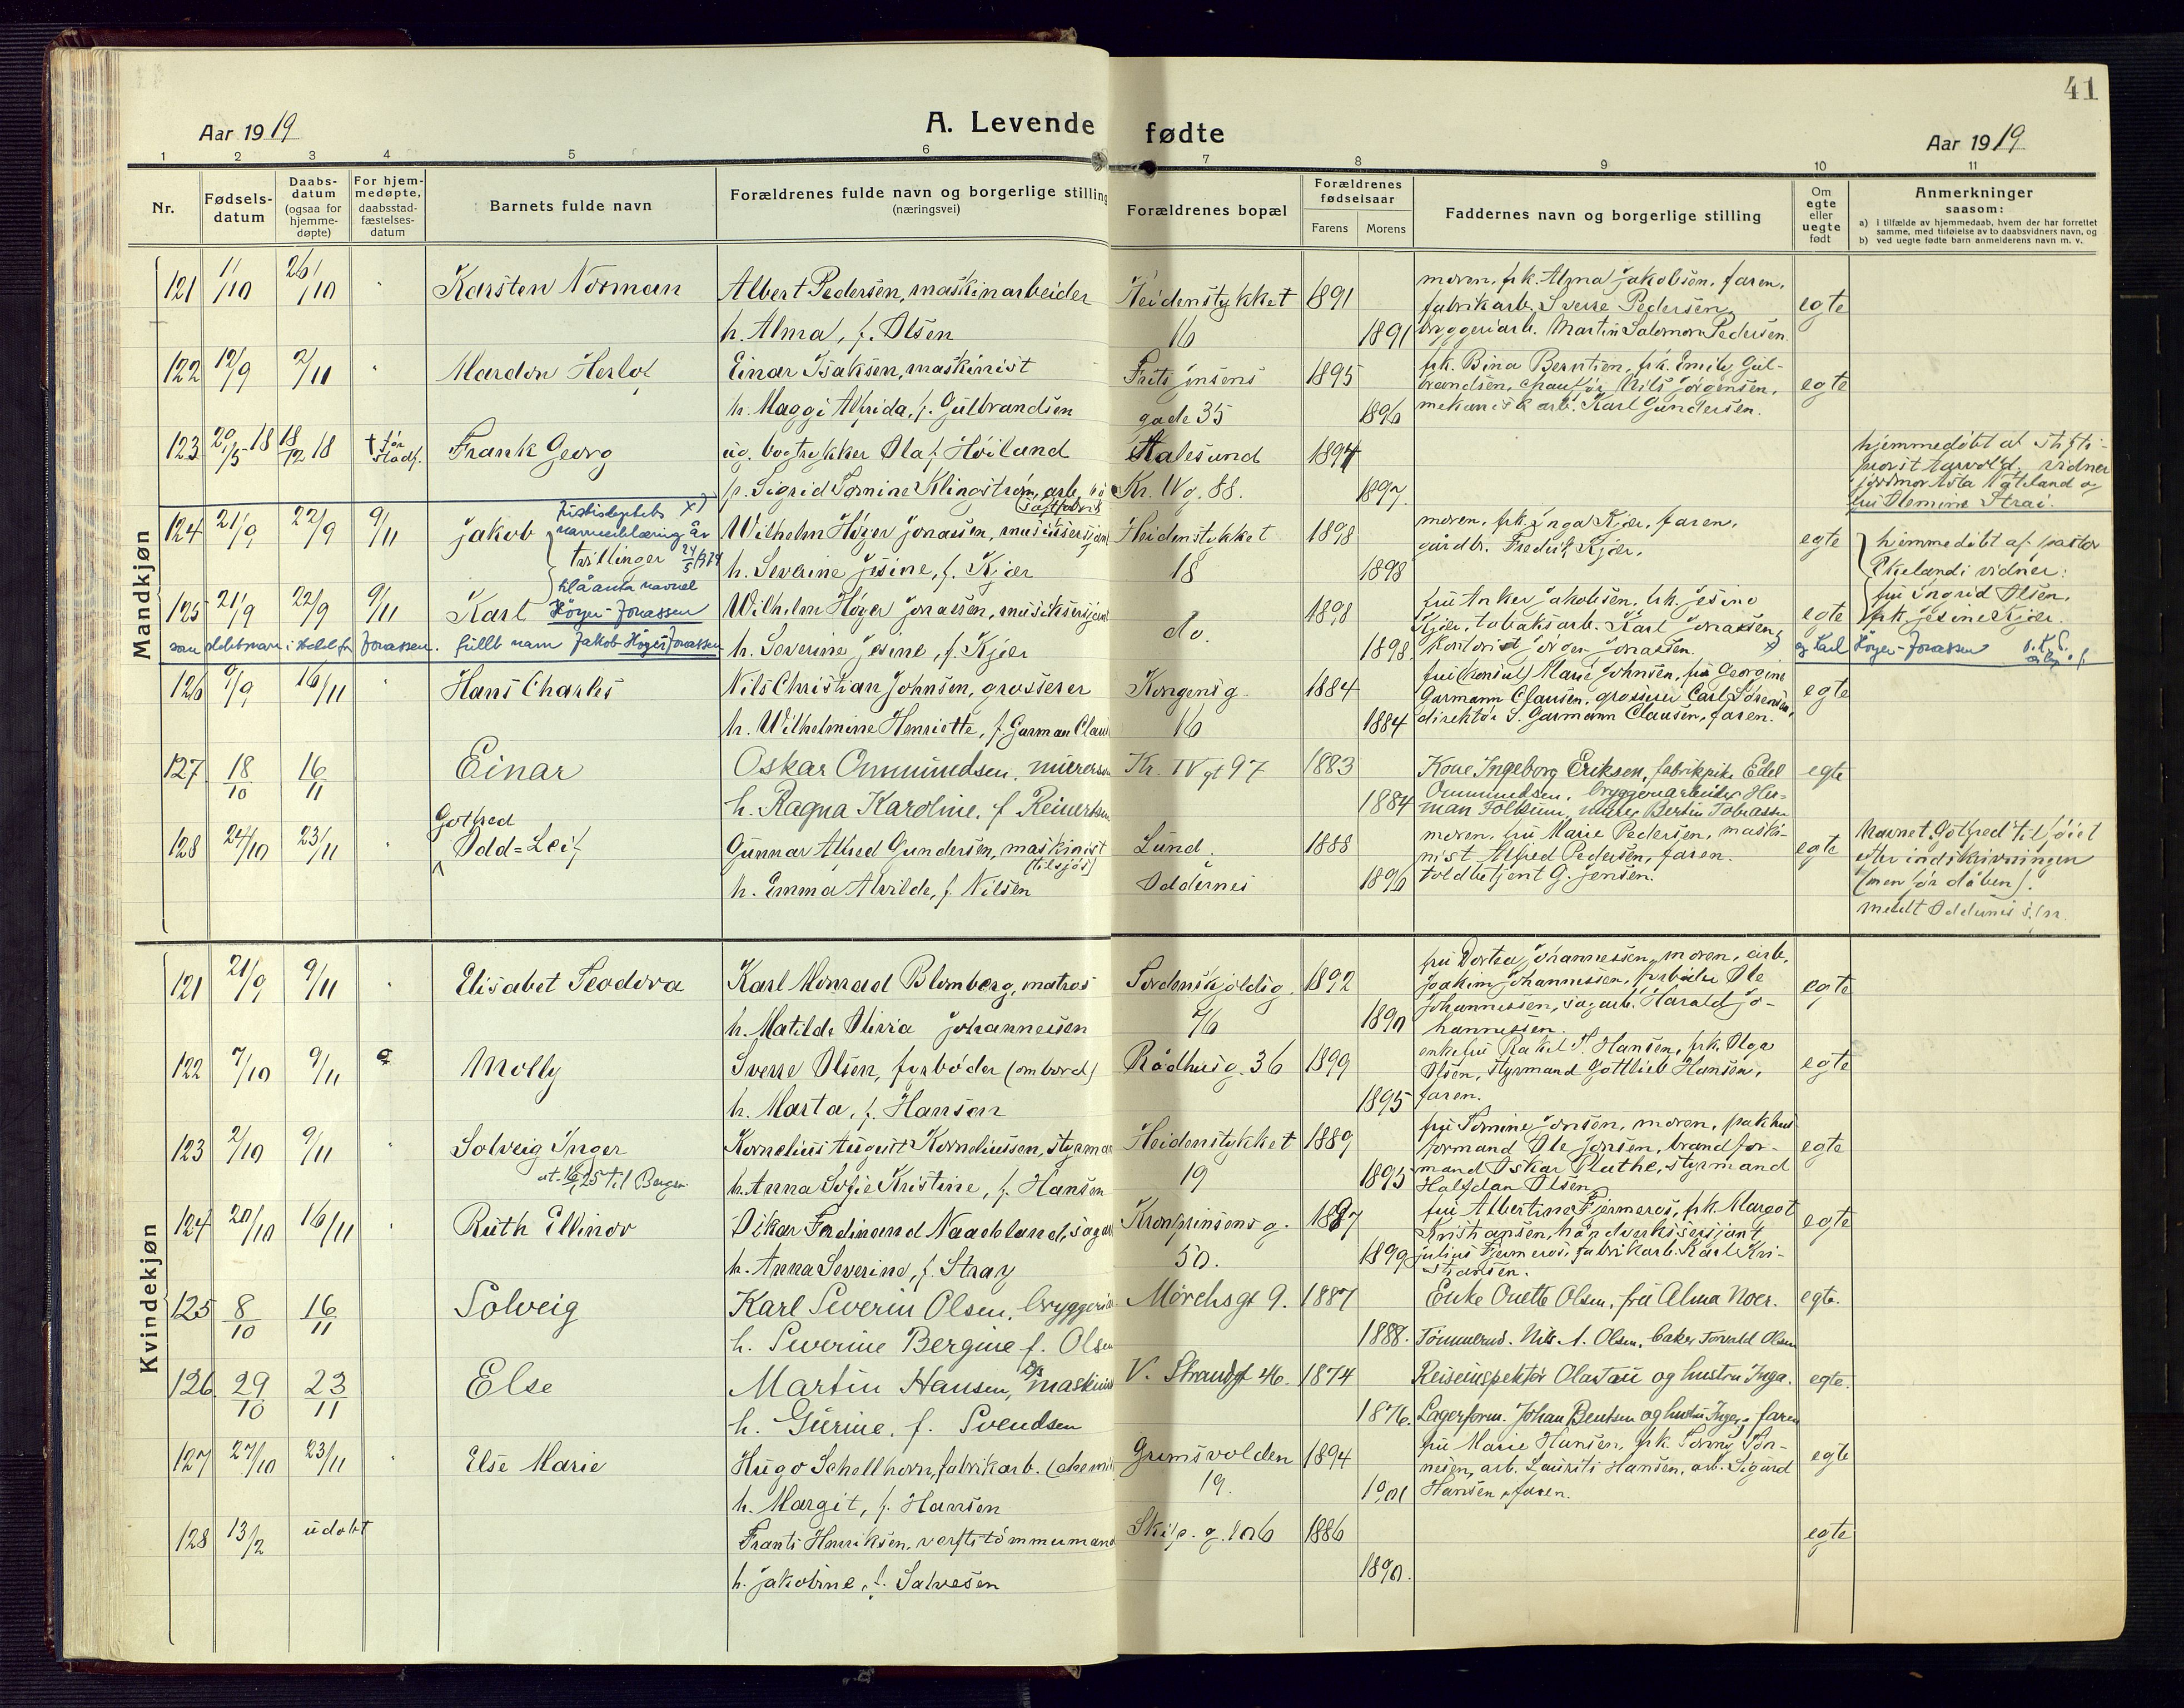 41
Aar 1919
A. Levende fødte
Aar 1919
1 2 3 4 5 6 7 8 9 10 11
Nr.
Fødsels-
datum
Daabs-
datum
(ogsaa for
hjemme-
døpte)
For hjem-
medøpte,
daabsstad-
fæstelses-
datum
Barnets fulde navn
Forældrenes fulde navn og borgerlige stilling
(næringsvei)
Forældrenes bopæl
Forældrenes
fødselsaar
Farens Morens
Faddernes navn og borgerlige stilling
Om
egte
eller
uegte
født
Anmerkninger
saasom:
a) i tilfælde av hjemmedaab, hvem der har forrettet
samme, med tilføielse av to daabsvidners navn, og
b) ved uegte fødte barn anmelderens navn m. v.
Mandkjøn
121 1/10 26/10 Karsten Norman Albert Pedersen, maskinarbeider Heidenstykket 1891 egte
h. Alma, f. Olsen 16 1891
moren, frk. Alma Jakobsen, faren,
fabrikarb. Sverre Pedersen,
bryggeriarb. Martin Salomon Pedersen.
122 12/9 2/11 Einar Isaksen, maskinist Frits Jensens 1895 egte
h. Maggi Alfrida, f. Gulbrandsen gade 35 1896
frk. Bina Berntsen, frk. Emily Gul-
brandsen, chauffør Nils Jørgensen,
mekanisk arb. Karl Gundersen.
123 20/5 18 18/12 18 † før stadf. Frank Georg ug. bogtrykker Olaf Høiland Aalesund 1894
p. Sigrid Tomine Klingstrøm, arb. på Kr. IV g. 88. 1897
saftfabrik
hjemmedøbt af stifts-
provst Aarvold. vidner
jordmor Asta Nateland og
fru Stray.
124 21/9 22/9 9/11 Jakob Wilhelm Høyer Jonassen, musikksersjant Heidenstykket 1898 egte
tvillinger
h. Severine Jesine, f. Kjær 18 1898
moren, frk. Inga Kjær, faren,
gårdbr. Fredrik Kjær.
hjemmedøbt af pastor
Ekeland; vidner:
fru Ingrid Olsen,
frk. Jesine Kjær.
til å anta navnet
125 21/9 22/9 9/11 Karl Høyer-Jonassen Wilhelm Høyer Jonassen, musikksersjant do. 1898 egte
h. Severine Jesine, f. Kjær 1898
fru Anker Jakobsen, frk. Jesine
Kjær, tobaksarb. Karl Jonassen,
kontorist Jonassen.
som slektsnavn i stedet for Jonassen. fullt navn Jakob Høyer Jonassen
og Karl Høyer-Jonassen
126 9/9 16/11 Hans Charles Nils Christian Johnsen, grosserer Kongensg. 1884 egte
h. Wilhelmine Henriette, f. Garman Clau 16 1884
fru (konsul) Marie Johnsen, fru Georgine
Garmann Clausen, grosserer Carl Sørensen,
direktør S. Garmann Clausen, faren.
127 18/10 16/11 Einar Oskar Ommundsen, murersv Kr. IV gt 97 1883 egte
h. Ragna Karoline, f. Reinertsen 1884
Kone Ingeborg Eriksen, fabrikpike Edel
Ommundsen, bryggeriarbeider Her-
man
128 24/10 23/11 Gotfred Odd=Leif Gunnar Alfred Gundersen, maskinist Lund. 1888 egte
(tilsjøs)
h. Emma Alvilde, f. Nilsen Oddernes 1896
moren, fru Marie Pedersen, maski-
nist Alfred Pedersen, faren.
toldbetjent G. Jensen.
Navnet „Gotfred" tilføiet
efter indskrivningen
(men før dåben).
meldt Oddernes s.
Kvindekjøn
121 21/9 9/11 Elisabet Teodora Karl Monrad Blomberg, matros Tordenskjoldsg. 1892 egte
h. Matilde Olivia Johannessen 76 1890
fru Dortea Johannessen, moren, arb.
Joakim Johannessen, fyrbøder Ole
Johannessen, sagarb. Harald Jo-
hannessen.
122 7/10 9/11 Molly Sverre Olsen, fyrbøder (ombord) Rådhusg. 36 1899 egte
h. Marta, f. Hansen 1895
enkefru Rakel T. Hansen, frk. Olga
Olsen, styrmand Gottlieb Hansen,
faren.
123 2/10 9/11 Solveig Inger Kornelius August Korneliussen, styrman Heidenstykket 1889 egte
25 til Bergen
h. Anna Sofie Kristine, f. Hansen 19 1893
fru Tomine Jonsen, moren, pakhus
formand Ole Jonsen, brandfor-
mand Oskar Pluthe, styrmand
Halfdan Olsen.
124 20/10 16/11 Ruth Ellinor Oskar Ferdinand Naadeland, sagar Kronprinsensg. 1897 egte
h. Anna Severine, f. Stray 50. 1899
fru Albertine Fjermeros, frk. Margot
Kristiansen, håndverkssersjant
Julius Fjermeros, fabrikarb. Karl Kri-
stiansen.
125 8/10 16/11 Solveig Karl Severin Olsen, bryggeria Mørchsgt 9. 1887 egte.
h. Severine Bergine f. Olsen 1888.
Enke Onette Olsen, fru Alma Noer.
Tømmermd. Nils A. Olsen, baker Torvald Olsen
126 29/10 23/11 Else Martin Hansen, maskinist V. Strandgt 46. 1874 egte.
h. Gurine, f. Svendsen 1876.
Reiseinspektør Olastau og hustru Inga.
Lagerform. Johan Bentsen og hustru Inger, faren
127 27/10 23/11 Else Marie Hugo Schellhorn, fabrikarb. (chemi Grimsvolden 1894 egte
h. Margit, f. Hansen 19. 1901
fru Marie Hansen, frk. Tøn-
nesen, arb. Laurits Hansen, arb. Sigurd
Hansen, faren.
128 13/2 udøbt Frants Henriksen, verftstømmermand Skip. g. 106 1886 egte
h. Jakobine, f. Salvesen 1890.